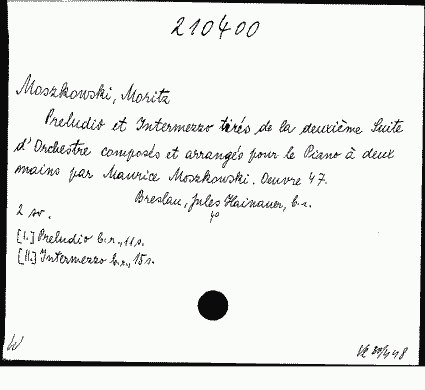 210400
Moszkowski, Moritz
Preludio et Intermezzo tirés de la deuxième Suite
d'Orchestre composés et arrangés pour le Piano à deux
mains par Maurice Moszkowski. Oeuvre 47.
Breslau, Jules Hainauer, b.r.
2 sv. 40
[I.] Preludio b.r., 11 s.
[II.] Intermezzo b.r., 15 s.
W